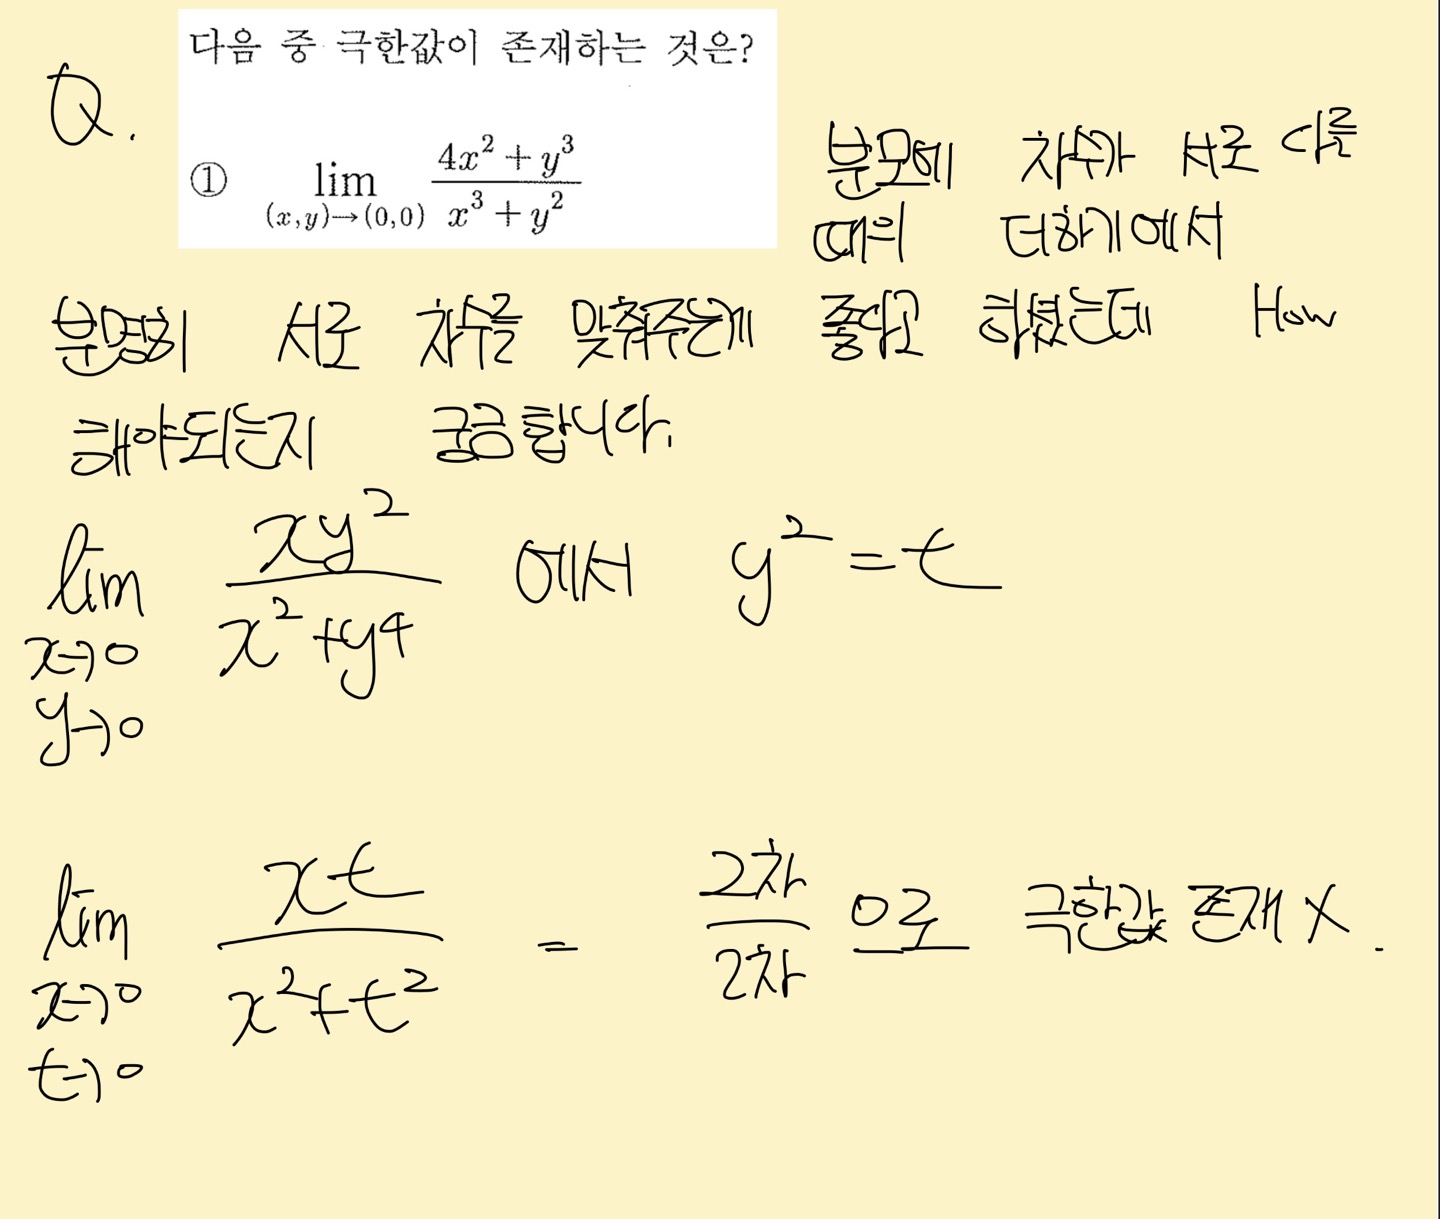 Q.
다음 중 극한값이 존재하는 것은?
① lim (x,y)→(0,0) (4x² + y³)/(x³ + y²)
분모에 차수가 서로 다를
때의 더하기에서
분명히 서로 차수를 맞춰주는게 좋다고 하셨는데 How
해야되는지 궁금합니다.
lim x→0 y→0 xy²/(x²+y⁴) 에서 y² = t
lim x→0 t→0 xt/(x²+t²) = 2차/2차 으로 극한값 존재 X.